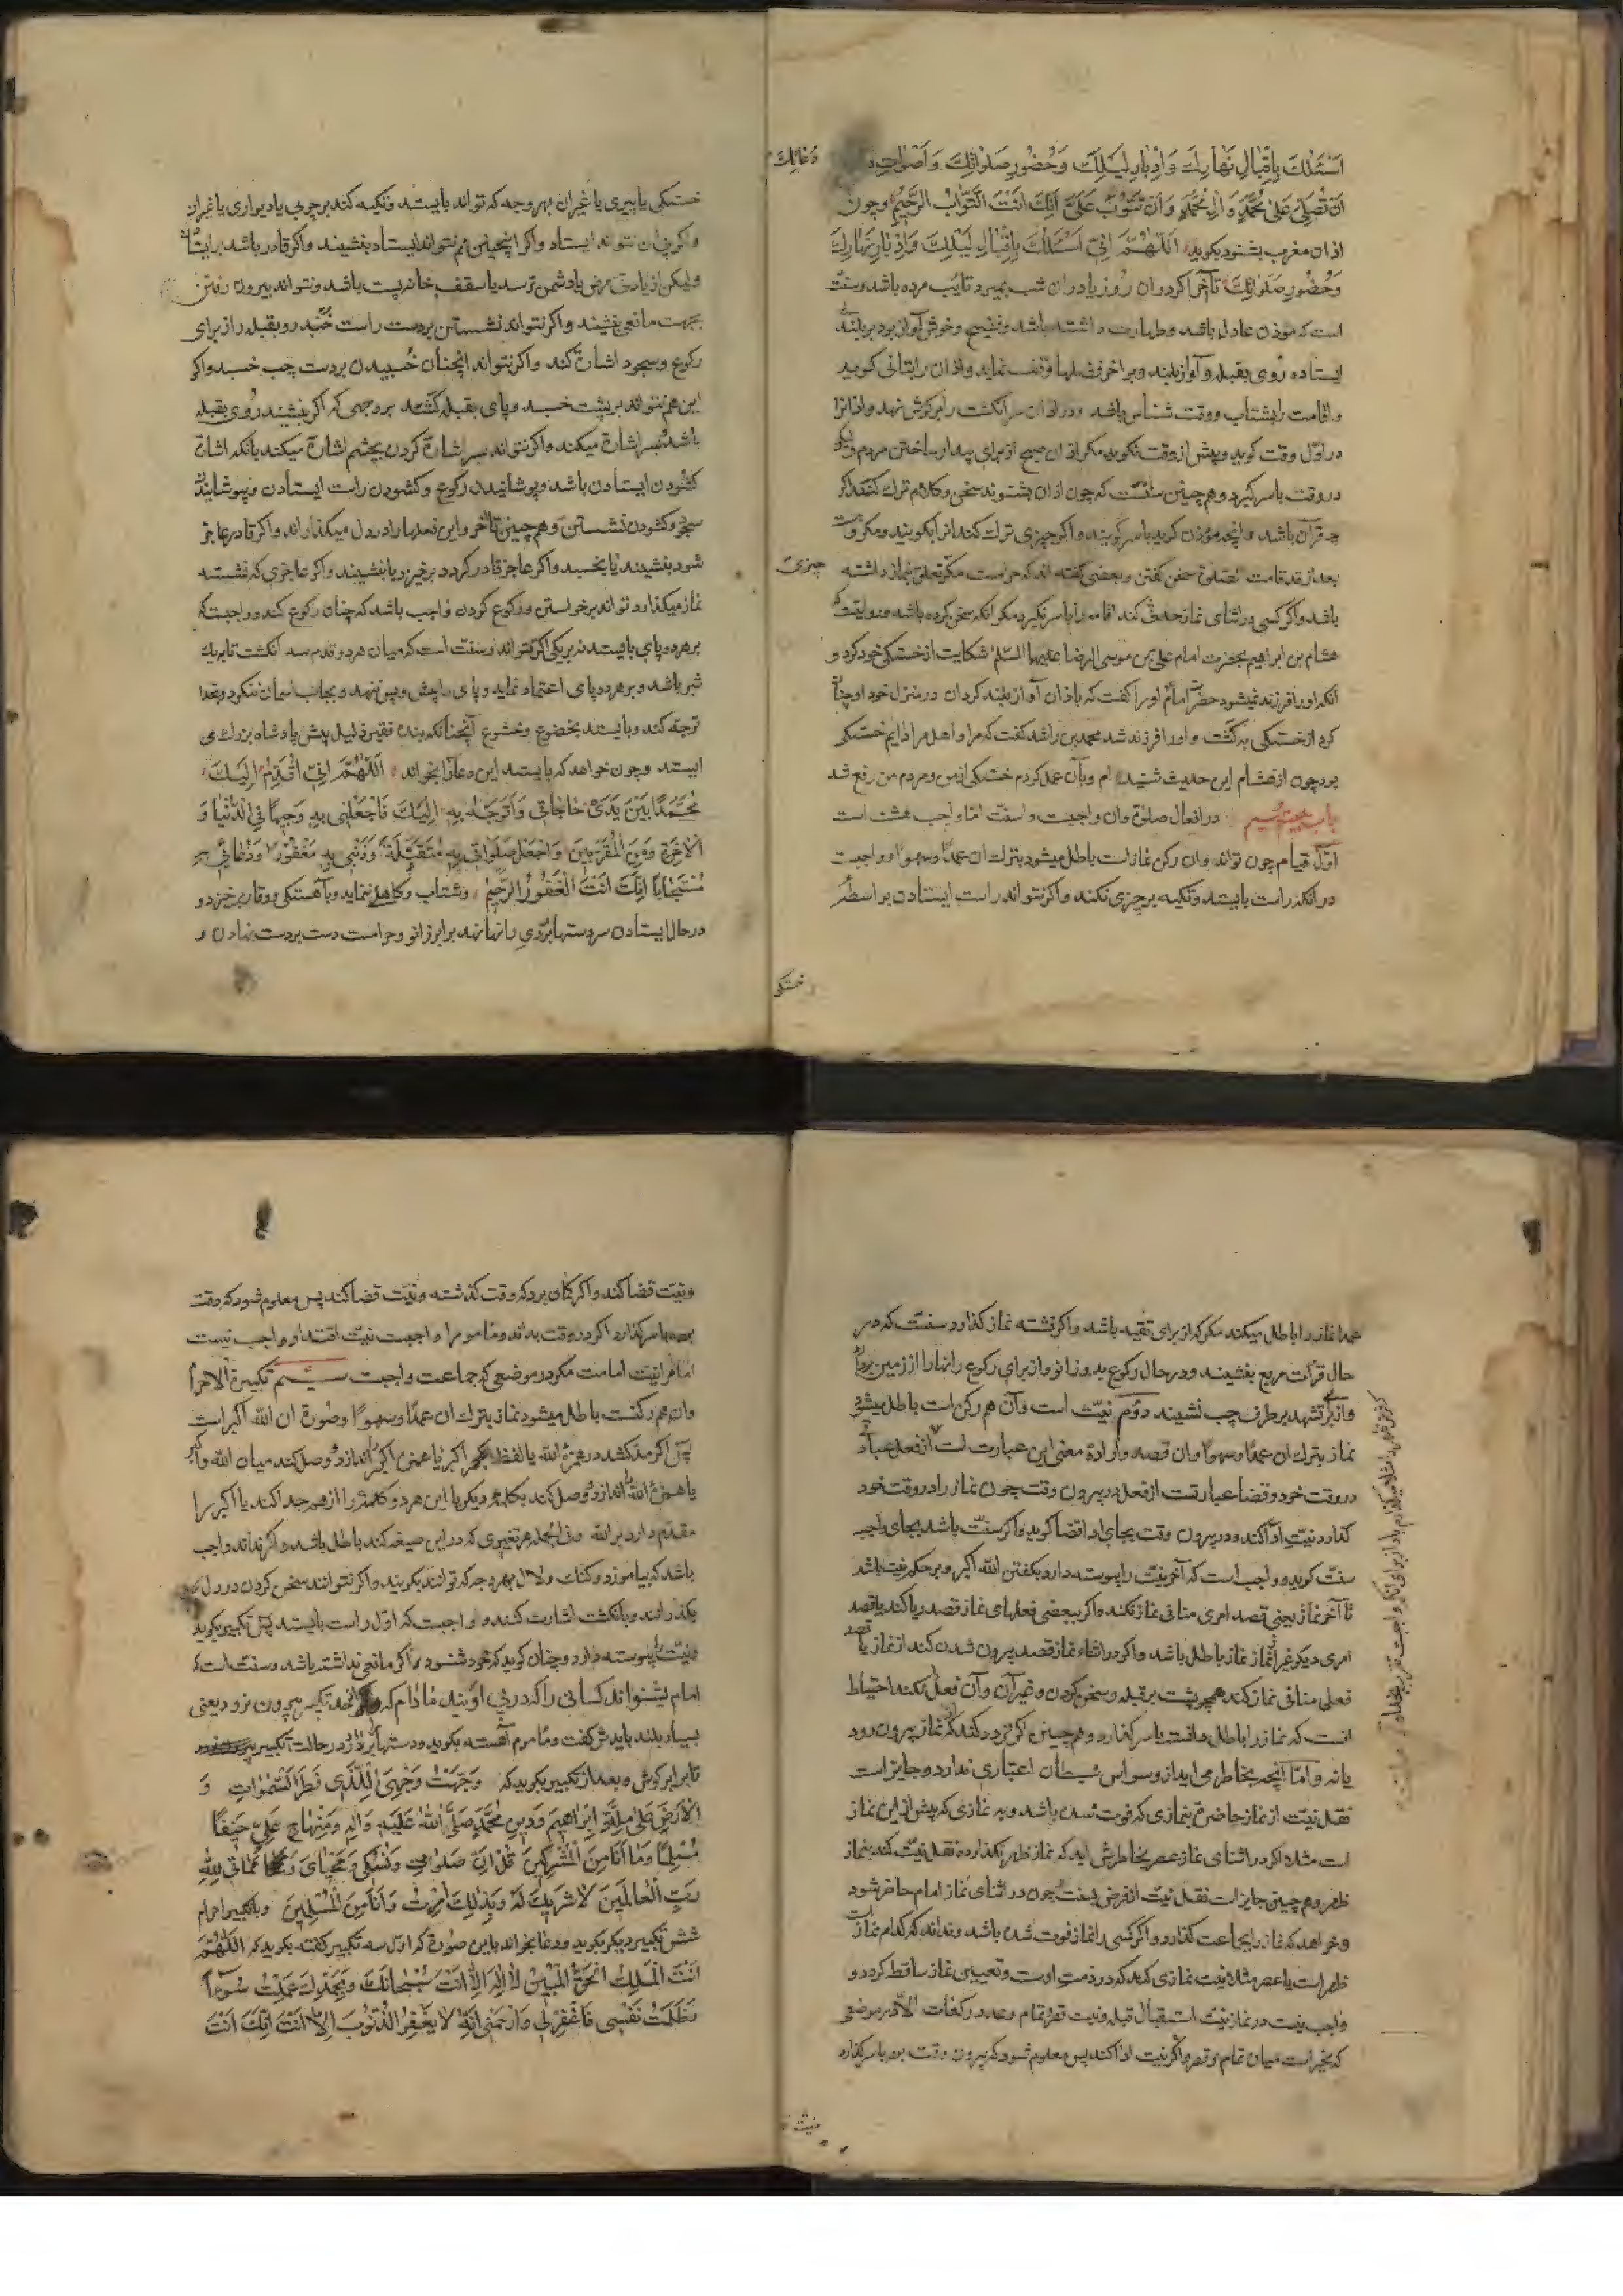 اَسْئَلُكَ بِاِقْبٰالِ نَهٰارِكَ وَاِدْبٰارِ لَيْلِكَ وَحُضُورِ صَلَوٰاتِكَ وَاَصْوٰاتِ
دُعٰائِكَ
اَنْ تُصَلِّيَ عَلىٰ مُحَمَّدٍ وَ اٰلِ مُحَمَّدٍ وَاَنْ تَتُوْبَ عَلَيَّ اِنَّكَ اَنْتَ التَّوّٰابُ الرَّحِيْمُ وچون
اذان مغرب بشنود بکوید اَللّٰهُمَّ اِنّيِ اَسْئَلُكَ بِاِقْبٰالِ لَيْلِكَ وَاِدْبٰارِ نَهٰارِكَ
وَحُضُورِ صَلَوٰاتِكَ تا آخر اکر در ان روز یا در ان شب بمیرد تایب مرده باشد وسنت
است که موذن عادل باشد وطهارت داشته باشد وفصیح وخوش آواز بود بر بلندی
ایستاده روی بقبله و آواز بلند وبر اخر فصلها وقف نماید واذان را بتانی کوید
واقامت را بشتاب ووقت شناس باشد ودر اذان سر انکشت را بر کوش نهد واذانرا
در اول وقت کوید وپیش از وقت نکوید مکر اذان صبح از برای بیدار ساختن مردم ولیکن
در وقت باسر کیرد وهم چنین سنتست که چون اذان بشنوند سخن وکلام ترک کنند اکر
چه قرآن باشد وانچه مؤذن کوید باسر کویند واکر چیزی ترک کند انرا بکویند ومکروهست
بعد از قد قامت الصلوة سخن کفتن وبعضی کفته اند که حرامست مکر تعلق بنماز داشته
چیزی
باشد واکر کسی در اثنای نماز حدث کند اقامه را باسر نکیرد مکر انکه سخن کرده باشد وروایتست که
هشام بن ابراهیم بحضرت امام علی بن موسی الرضا علیهما السلم شکایت از خستکی خود کرد و
انکه او را فرزند نمیشود حضرت امام او را کفت که باذان آواز بلند کردان در منزل خود او چنان
کرد از خستکی به کشت و او را فرزند شد محمد بن راشد کفت که مرا و اهل مرا دایم خستکی
بود چون از هشام این حدیث شنیدم وبآن عمل کردم خستکی از من ومردم من رفع شد
باب بیست وسیم در افعال صلوة وان واجبست وسنت اما واجب هشت است
اول قیام چون تواند وان رکن نماز است باطل میشود بترک ان عمدا وسهوا وواجبست
در انکه راست بایستد وتکیه بر چیزی نکند واکر نتواند راست ایستادن بواسطه
خستکی
خستکی یا پیری یا غیر ان بهر وجه که تواند بایستد وتکیه کند بر چوبی یا دیواری یا غیر ان
واکر چنان نتواند ایستاد واکر انچنین هم نتواند ایستاد بنشیند واکر قادر باشد بر ایستادن
ولیکن از زیادتی مرض یا دشمن ترسد یا سقف خانه پست باشد ونتواند بیرون رفتن
بجهت مانعی بنشیند واکر نتواند نشستن بر دست راست خسبد رو بقبله واز برای
رکوع وسجود اشارة کند واکر نتواند انچنان خسبیدن بر دست چپ خسبد واکر
این هم نتواند بر پشت خسبد وپای بقبله کشد بر وجهی که اکر بنشیند روی بقبله
باشد وبسر اشارة میکند واکر نتواند بسر اشارة کردن بچشم اشارة میکند بانکه اشارة
کشودن ایستادن باشد وپوشانیدن رکوع وکشودن راست ایستادن وپوشانیدن
سجود وکشودن نشستن وهم چنین تا آخر واین فعلها را در دل میکذراند واکر قادر عاجز
شود بنشیند یا بخسبد واکر عاجز قادر کردد برخیزد یا بنشیند واکر عاجزی که نشسته
نماز میکذارد تواند برخواستن ورکوع کردن واجب باشد که چنان رکوع کند وواجبست که
بر هر دو پای بایستد نه بر یکی اکر تواند وسنت است که میان هر دو قدم سه انکشت تا بریک
شبر باشد وبر هر دو پای اعتماد نماید وپای را پیش وپس ننهد وبجانب اسمان ننکرد وبخدا
توجه کند وبایستد بخضوع وخشوع آنچنانکه بنده فقیر ذلیل پیش پادشاه بزرک می
ایستد وچون خواهد که بایستد این دعا را بخواند اَللّٰهُمَّ اِنّيِ اُقَدِّمُ اِلَيْكَ
مُحَمَّدًا بَيْنَ يَدَيْ حٰاجٰاتيِ وَاَتَوَجَّهُ بِهِ اِلَيْكَ فَاجْعَلْنيِ بِهِ وَجِيهًا فيِ الدُّنْيٰا وَ
الْاٰخِرَةِ وَمِنَ الْمُقَرَّبِينَ وَاجْعَلْ صَلَوٰاتيِ بِهِ مُتَقَبَّلَةً وَذَنْبيِ بِهِ مَغْفُورًا وَدُعٰائيِ بِهِ
مُسْتَجٰابًا اِنَّكَ اَنْتَ الْغَفُورُ الرَّحِيْمُ وشتاب وکاهلی ننماید وبآهستکی ووقار برخیزد و
در حال ایستادن سر دستها بر روی رانها نهد برابر زانو وحرامست دست بر دست نهادن و
عمدا نماز را باطل میکند مکر که از برای تقیه باشد واکر نشسته نماز کذارد سنتست که در
حال قرائت مربع بنشیند ودر حال رکوع بدو زانو واز برای رکوع رانها را از زمین بردارد
واز برای تشهد بر طرف چپ نشیند دوم نیت است وآن هم رکن است باطل میشود
نماز بترک ان عمدا وسهوا وان قصد وارادة معنی این عبارت است از فعل عبادت
در وقت خود وقضا عبارتست از فعل در بیرون وقت چون نماز را در وقت خود
کذارد نیت ادا کند ودر بیرون وقت بجای ادا قضا کوید واکر سنت باشد بجای واجب
سنت کوید وواجب است که آخر نیت را پیوسته دارد بکفتن الله اکبر وبر حکم نیت باشد
تا آخر نماز یعنی قصد امری منافی نماز نکند واکر ببعضی فعلهای نماز قصد ریا کند یا قصد
امری دیکر غیر از نماز نماز باطل باشد واکر در اثناء نماز قصد بیرون شدن کند از نماز یا قصد
فعلی منافی نماز کند همچو پشت بر قبله وسخن کردن وغیر آن وآن فعل نکند احتیاط
انست که نماز را باطل دانسته باسر کذارد وهم چنین اکر تردد کند که از نماز بیرون رود
یا نه واما آنچه بخاطر می اید از وسواس شیطان اعتباری ندارد وجایز است
نقل نیت از نماز حاضره بنمازی که فوت شده باشد وبه نمازی که پیش از این نماز
است مثلا اکر در اثنای نماز عصر بخاطرش اید که نماز ظهر نکذارده نقل نیت کند بنماز
ظهر وهم چنین جایز است نقل نیت از فرض بسنت چون در اثنای نماز امام حاضر شود
وخواهد که نماز را بجماعت کذارد واکر کسی را نماز فوت شده باشد ونداند که کدام نماز است
ظهر است یا عصر مثلا نیت نمازی کند که در ذمت اوست وتعیین نماز ساقط کردد و
واجب نیست در نماز نیت استقبال قبله ونیت قصر وتمام وعدد رکعات الا در موضعی
که مخیر است میان تمام وقصر واکر نیت ادا کند پس معلوم شود که بیرون وقت بوده باسر کذارد
ونیت قضا کند واکر کمان برد که وقت کذشته ونیت قضا کند پس معلوم شود که وقت
بوده باسر کذارد اکر در وقت بداند ومأموم را واجبست نیت اقتدا وواجب نیست
امام را نیت امامت مکر در موضعی که جماعت واجبست سیم تکبیرة الاحرام
وان هم رکنست باطل میشود نماز بترک ان عمدا وسهوا وصورة ان الله اکبر است
پس اکر مد کشد در همزه الله یا لفظ اکبر اکبار یا همزه اکبر اندازد وصل کند میان الله واکبر
یا همزه الله اندازد وصل کند بکلمه دیکر یا این هر دو کلمه را از هم جدا کند یا اکبر را
مقدم دارد بر الله وفی الجمله هر تغییری که در این صیغه کند باطل باشد واکر نداند واجب
باشد که بیاموزد وکنک ولال بهر وجه که توانند بکویند واکر نتوانند سخن کردن در دل
بکذرانند وبانکشت اشارت کنند و واجبست که اول راست بایستد پس تکبیر بکوید
ونیت را پیوسته دارد وچنان کوید که خود شنود اکر مانعی نداشته باشد وسنت است که
امام بشنواند کسانی را که در پی اویند مادام که از حد تکبیر بیرون نرود یعنی
بسیار بلند بایدش کفت ومأموم آهسته بکوید ودستها بردارد در حالت تکبیر
تا برابر کوش وبعد از تکبیر بکوید که وَجَّهْتُ وَجْهِيَ لِلَّذِي فَطَرَ السَّمٰوٰاتِ وَ
الْاَرْضَ عَلىٰ مِلَّةِ اِبْرٰاهِيمَ وَدِينِ مُحَمَّدٍ صَلَّى اللّٰهُ عَلَيْهِ وَاٰلِهِ وَمِنْهٰاجِ عَلِيٍّ حَنِيفًا
مُسْلِمًا وَمٰا اَنَا مِنَ الْمُشْرِكِينَ قُلْ اِنَّ صَلٰوتيِ وَنُسُكيِ وَمَحْيٰايَ وَمَمٰاتيِ لِلّٰهِ
رَبِّ الْعٰالَمِينَ لٰا شَرِيكَ لَهُ وَبِذٰلِكَ اُمِرْتُ وَاَنَا مِنَ الْمُسْلِمِينَ وبا تکبیر احرام
شش تکبیر دیکر بکوید ودعا بخواند باین صورة که اول سه تکبیر کفته بکوید که اَللّٰهُمَّ
اَنْتَ الْمَلِكُ الْحَقُّ الْمُبِينُ لٰا اِلٰهَ اِلّٰا اَنْتَ سُبْحٰانَكَ وَبِحَمْدِكَ عَمِلْتُ سُوْءًا
وَظَلَمْتُ نَفْسيِ فَاغْفِرْ ليِ وَارْحَمْنيِ اِنَّهُ لٰا يَغْفِرُ الذُّنُوبَ اِلّٰا اَنْتَ اِنَّكَ اَنْتَ